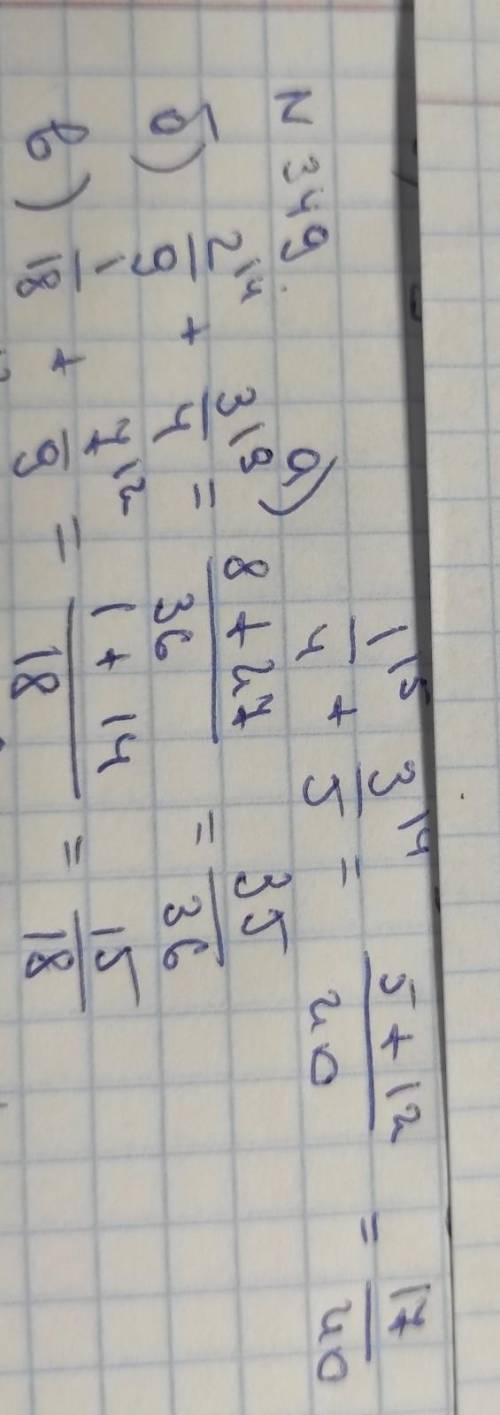 N 349.
а) 1/4 |5 + 3/5 |4 = (5 + 12)/20 = 17/20
б) 2/9 |4 + 3/4 |9 = (8 + 27)/36 = 35/36
в) 1/18 + 7/9 |2 = (1 + 14)/18 = 15/18